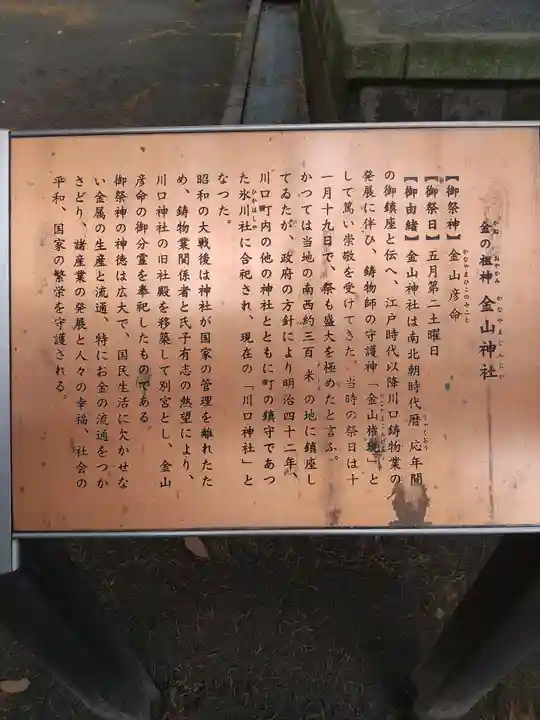 金の祖神 金山神社
かね おやかみ かなやまじんじゃ
【御祭神】金山彦命
かなやまひこのみこと
【御祭日】五月第二土曜日
【御由緒】金山神社は南北朝時代暦応年間
りゃくおう
の御鎮座と伝へ、江戸時代以降川口鋳物業の
発展に伴ひ、鋳物師の守護神「金山権現」と
して篤い崇敬を受けてきた。当時の祭日は十
一月十九日で、祭も盛大を極めたと言ふ。
かつては当地の南西約三百米の地に鎮座し
てゐたが、政府の方針により明治四十二年、
川口町内の他の神社とともに町の鎮守であつ
た氷川社に合祀され、現在の「川口神社」と
ひかはしゃ
なつた。
昭和の大戦後は神社が国家の管理を離れたた
め、鋳物業関係者と氏子有志の熱望により、
川口神社の旧社殿を移築して別宮とし、金山
彦命の御分霊を奉祀したものである。
御祭神の神徳は広大で、国民生活に欠かせな
い金属の生産と流通、特にお金の流通をつか
さどり、諸産業の発展と人々の幸福、社会の
平和、国家の繁栄を守護される。